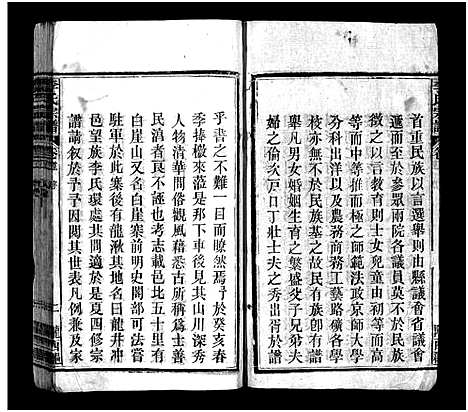 首重民族以言選舉則由縣議會省議會
遞而至於參眾兩院各議員莫不於民
族以言教育則士女兒童由初
等而中等而極之師範法政京師大學
分科出洋以及農務商務工藝路礦各學
校亦無不於民族基之故民有族卽有譜
舉凡男女婚姻生育之繁盛孩
婦之倫次戶口丁壯士夫之秀出胥於譜
乎書之不難一目而瞭然焉予於癸亥春
季捧檄來涖是邦下車後見其山川深秀
人物清華間俗觀風藉悉古所稱爲士善
民淯者良不誣也考志載邑北五十里有
白崖山又名白崖寨前明史閣部可法嘗
駐軍於此寨後有龍湫其地名曰龍井中
邑望族李氏環處其間於是夏四修宗
譜請叙於予予因閱其世表凡例見其